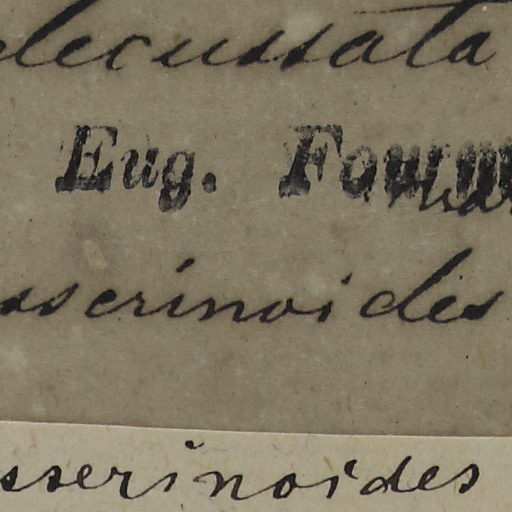 decussata
Eug. Fourn
sserinoides
sserinoides